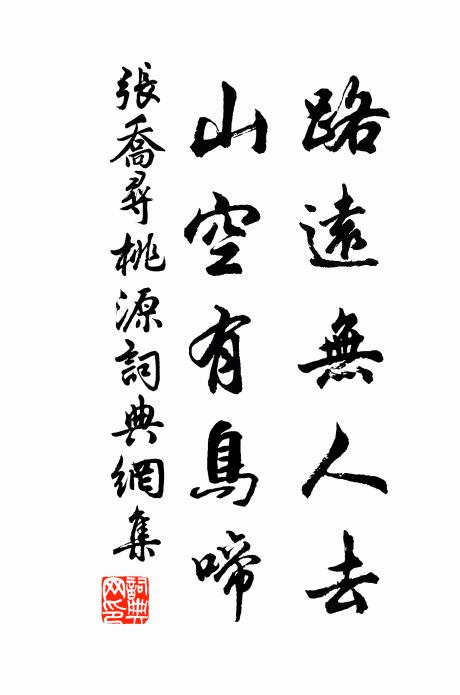 路遠無人去
山空有鳥啼
張喬尋桃源詞典網集
詞典網印